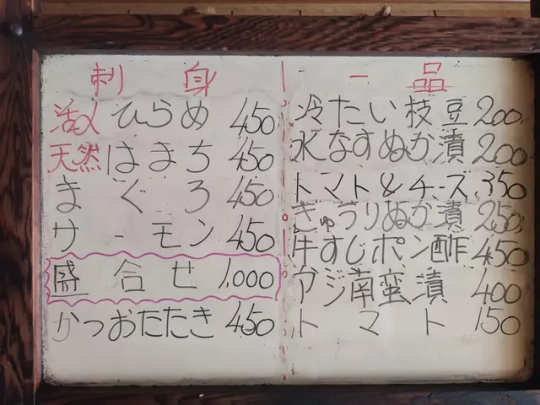 刺身
活〆ひらめ 450
天然はまち 450
まぐろ 450
サーモン 450
盛合せ 1,000
かつおたたき 450
一品
冷たい枝豆 200
水なすぬか漬 200
トマト&チーズ 350
きゅうりぬか漬 250
牛すじポン酢 450
アジ南蛮漬 400
トマト 150